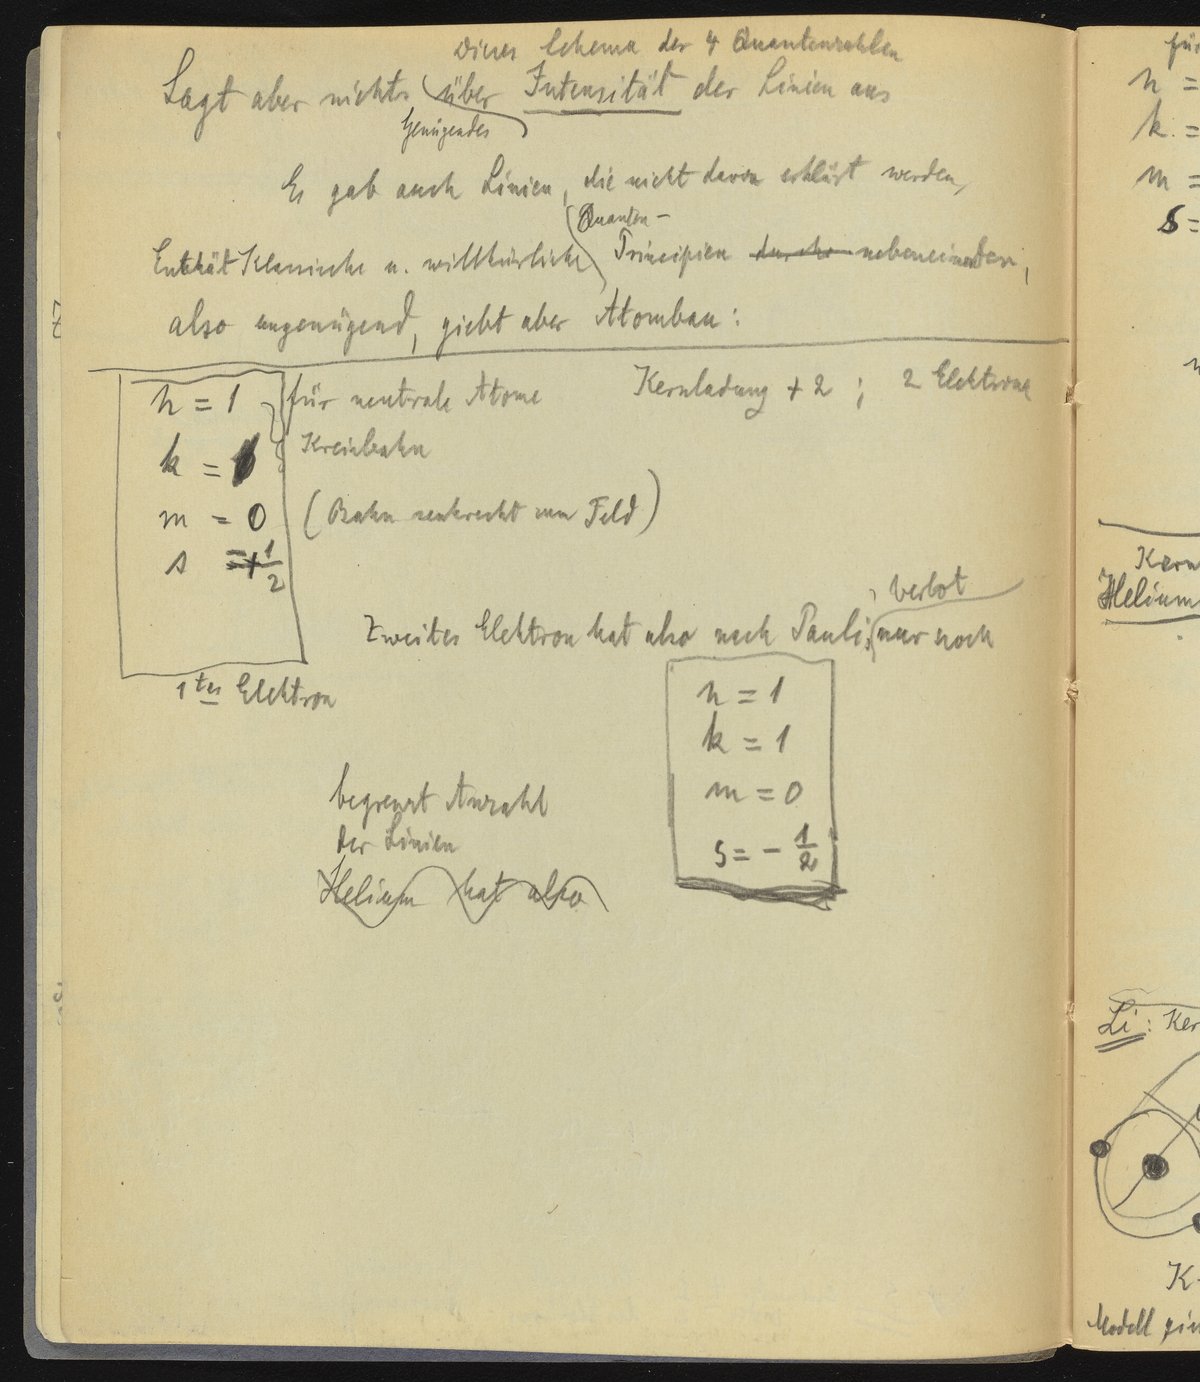 Dieses Schema der 4 Quantenzahlen
Sagt aber nichts über Intensität der Linien aus
Genügendes
Es gab auch Linien, die nicht davon erklärt werden,
Quanten-
Enthält Klassische u. willkürliche Principien durchs nebeneinander,
also ungenügend, giebt aber Atombau:
n = 1 für neutrale Atome Kernladung + 2 ; 2 Elektrone
k = 1 Kreisbahn
m = 0 (Bahn senkrecht zum Feld)
s = + 1/2
verbot
Zweites Elektron hat also nach Pauli, nur noch
1tes Elektron
n = 1
k = 1
m = 0
s = - 1/2
begrenzt Anzahl
der Linien
Helium hat also
für
n =
k =
m =
s =
Kern
Helium
Li : Ker
K-
Modell